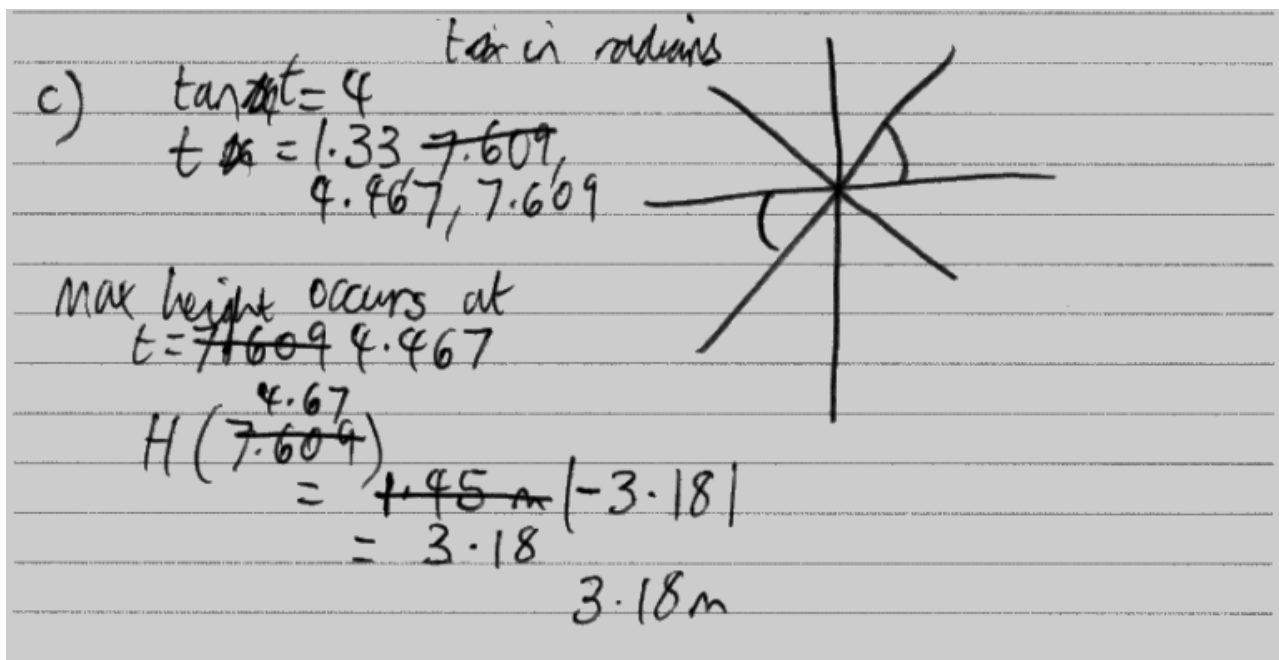 in radians
c) tan t = 4
t = 1.33, 7.609,
4.467, 7.609
Max height occurs at
t = 7.609 4.467
4.67
H(7.609)
= 1.45 m |-3.18|
= 3.18
3.18m